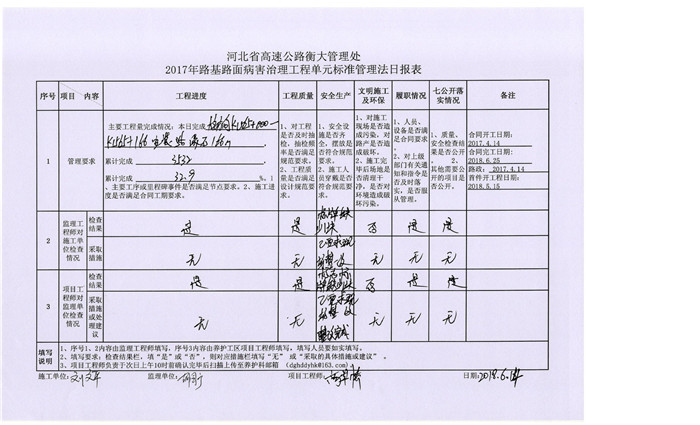 河北省高速公路衡大管理处
2017年路基路面病害治理工程单元标准管理法日报表
序号 项目 内容 工程进度 工程质量 安全生产 文明施工及环保 履职情况 七公开落实情况 备注
1 管理要求
主要工程量完成情况：本日完成
累计完成 3532
累计完成 32.9 %。1
、主要工序或里程碑事件是否满足节点要求。2、施工进
度是否满足合同工期要求。
1、对工程是否及时抽检，抽检频率是否满足规范要求。
2、工程质量是否满足设计规范要求。
1、安全设施是否齐全，摆放是否符合规范要求。
2、施工人员穿戴是否符合规范要求。
1、对施工现场是否造成污染，对路产是否造成破坏。
2、施工完毕后场地是否清理干净，是否对环境造成破坏污染。
1、人员、设备是否满足合同要求
2、对上级部门有关通知和指令是否及时落实，是否服从管理。
1、质量、安全检查结果是否公开
2、其他需要公开的项目是否公开。
合同开工日期：
2017.4.14
合同完工日期：
2018.6.25
路政：2017.4.14
首件开工日期：
2018.5.15
2 监理工程师对施工单位检查情况
检查结果 是 是 否 是 是
采取措施 无 无 无 无 无
3 项目工程师对监理单位检查情况
检查结果 是 是 否 是 是
采取措施或处理建议 无 无 无 无 无
填写说明
1、序号1、2内容由监理工程师填写，序号3内容由养护工区项目工程师填写，填写人员要如实填写。
2、填写要求：检查结果栏，填“是”或“否”。则对应措施栏填写“无” 或“采取的具体措施或建议” 。
3、项目工程师负责于次日上午10时前确认完毕后扫描上传至养护科邮箱 (dghddyhk@163.com)
施工单位： 监理单位： 项目工程师： 日期：2018.6.14